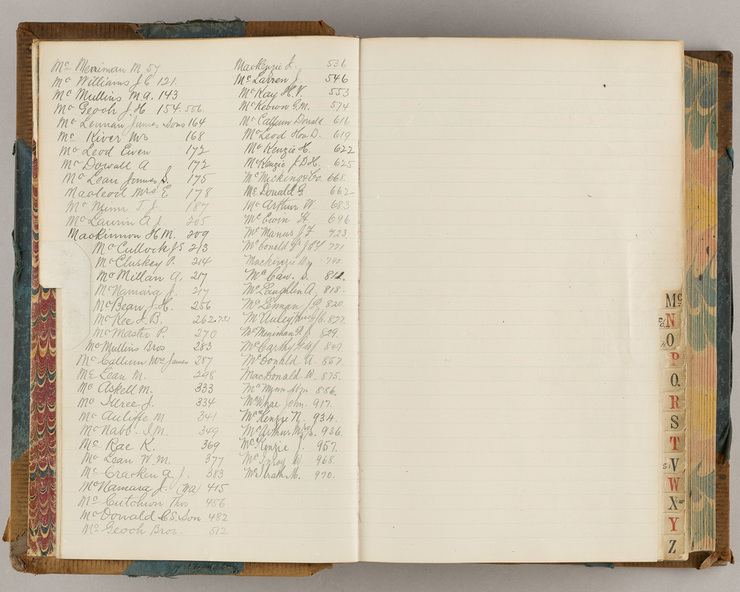 Mc Merriman M. 57
Mc Williams J. C 121
Mc Mullins M. A. 143
Mc Geoch J. H 154. 556
Mc Lennan James Sons 164
Mc River Wm 168
Mc Leod Ewen 172
Mc Dowall A 172
Mc Lean James S. 175
Macleod Mrs E 178
Mc Minn T. J. 187
Mc Laurin A J. 205
Mackinnon H. M. 209
Mc Cullock J S 213
Mc Cluskey P. 214
Mc Millan A. 217
Mc Namara J. 217
Mc Bean J. H. 256
Mc Kee L. B. 262
Mc Master P. 270
Mc Mullins Bros 283
Mc Callum James 287
Mc Lean M. 298
Mc Askell M. 333
Mc Ilree J. 334
Mc Auliffe M 341
Mc Nabb. J. M. 349
Mc Rae K. 369
Mc Lean W. M. 377
Mc Cracken G J. 383
Mc Namara J. (Wa) 445
Mc Cutcheon Thos 456
Mc Donald C. S. Son 482
Mc Geoch Bros. 512
Mackenzie L. 536
Mc Larren J. 546
Mc Kay H. V. 553
Mc Keown G. M. 574
Mc Callum Donald 616
Mc Leod Hon D. 619
Mc Kenzie H. 622
Mc Kenzie J. D. H. 625
Mc Micking & Co. 668
Mc Donald G. 662
Mc Arthur W. 683
Mc Ewin H. 696
Mc Manus J. F 723
Mc Donald 771
Mackenzie
Mc Caw. S. 812
Mc Laughlin A. 818
Mc Lennan J. P. 820
Mc Auley 827
Mc Meniman P. J. 829
Mc Carthy
Mc Donald A. 867
MacDonald W. 875
Mc Mynn 886
McWhae John. 917
Mc Kenzie N. 934
Mc Arthur 936
Mc Kenzie J. 957
Mc 968
Mc Grath M. 970
Mc
N
O
P
Q.
R
S
T
V
W
X
Y
Z